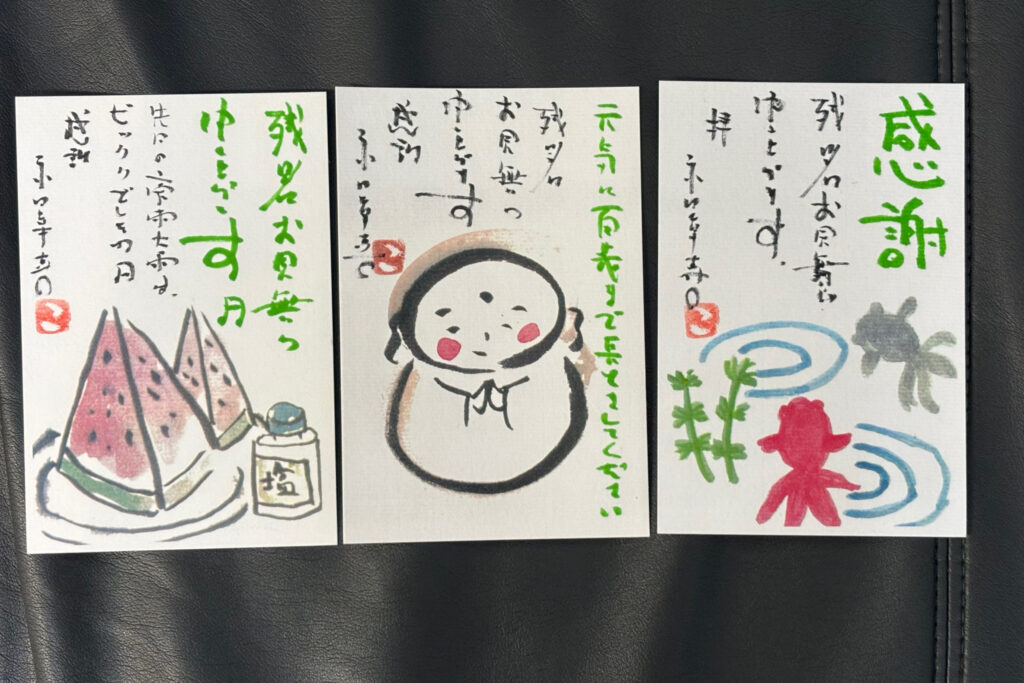 感謝
残暑お見舞い
申し上げます。
拝
元気に百歳まで長生きしてください
残暑
お見舞い
申し上げます
感謝
残暑お見舞い
申し上げます
先日の雷雨大雨は、
ビックリでした
感謝
塩